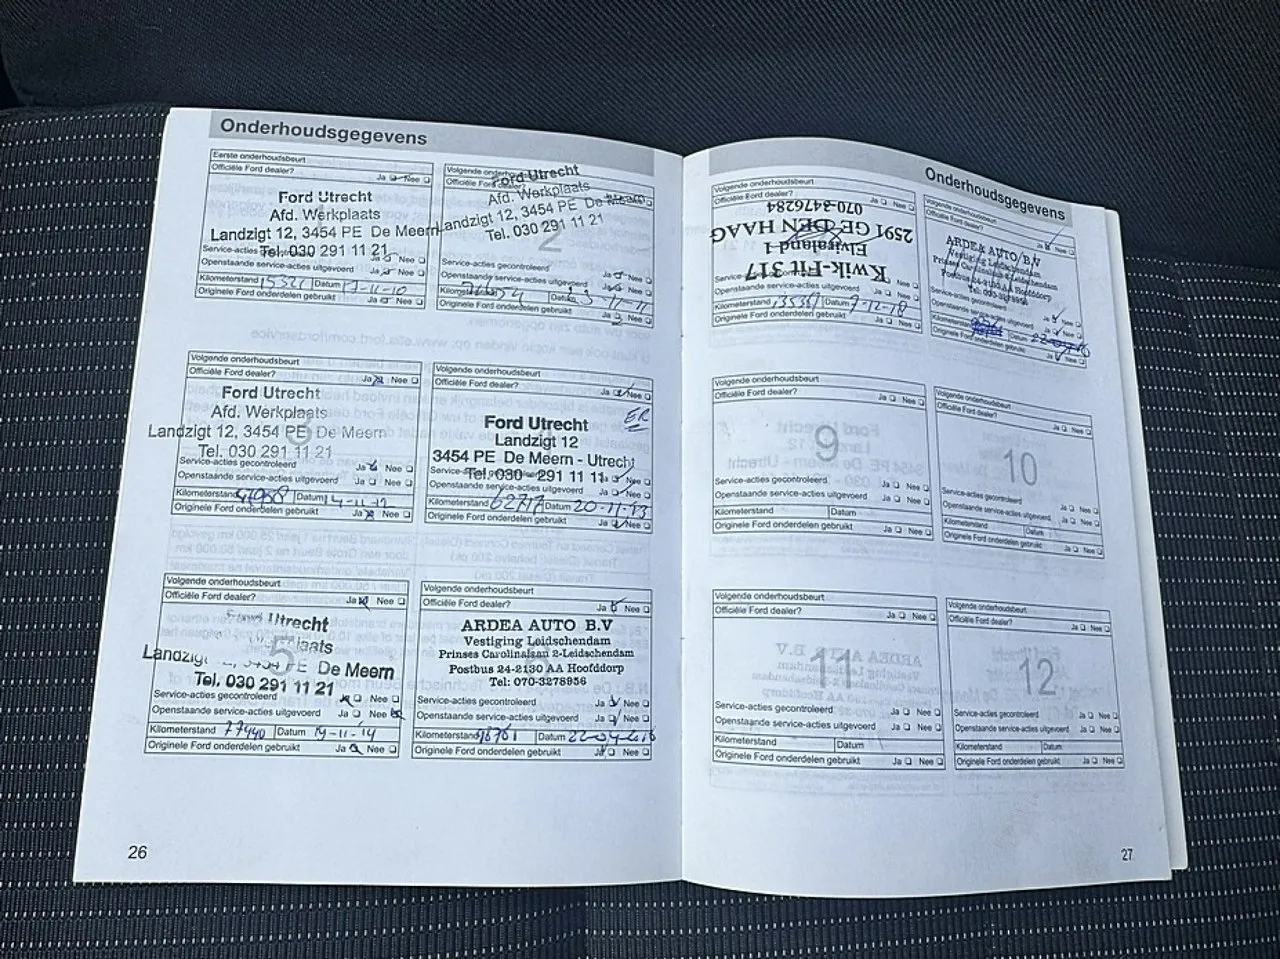 Onderhoudsgegevens
Eerste onderhoudsbeurt
Officiële Ford dealer? Ja Nee
Ford Utrecht
Afd. Werkplaats
Landzigt 12, 3454 PE De Meern
Tel. 030 291 11 21
Service-acties gecontroleerd Ja Nee
Openstaande service-acties uitgevoerd Ja Nee
Kilometerstand 15321 Datum 17-11-10
Originele Ford onderdelen gebruikt Ja Nee
Volgende onderhoudsbeurt
Officiële Ford dealer?
Ford Utrecht
Afd. Werkplaats
Landzigt 12, 3454 PE De Meern
Tel. 030 291 11 21
2
Service-acties gecontroleerd Ja Nee
Openstaande service-acties uitgevoerd Ja Nee
Kilometerstand Datum 3-11-11
Originele Ford onderdelen gebruikt Ja Nee
Volgende onderhoudsbeurt
Officiële Ford dealer? Ja Nee
Ford Utrecht
Afd. Werkplaats
3
Landzigt 12, 3454 PE De Meern
Tel. 030 291 11 21
Service-acties gecontroleerd Ja Nee
Openstaande service-acties uitgevoerd Ja Nee
Kilometerstand Datum 14-11-12
Originele Ford onderdelen gebruikt Ja Nee
Volgende onderhoudsbeurt
Officiële Ford dealer? Ja Nee
ER
Ford Utrecht
Landzigt 12
3454 PE De Meern - Utrecht
Tel. 030 - 291 11 11
Service-acties gecontroleerd Ja Nee
Openstaande service-acties uitgevoerd Ja Nee
Kilometerstand 62717 Datum 20-11-13
Originele Ford onderdelen gebruikt Ja Nee
Volgende onderhoudsbeurt
Officiële Ford dealer? Ja Nee
Ford Utrecht
5
Landzigt 12, 3454 PE De Meern
Tel. 030 291 11 21
Service-acties gecontroleerd Ja Nee
Openstaande service-acties uitgevoerd Ja Nee
Kilometerstand 77440 Datum 19-11-14
Originele Ford onderdelen gebruikt Ja Nee
Volgende onderhoudsbeurt
Officiële Ford dealer? Ja Nee
ARDEA AUTO B.V
Vestiging Leidschendam
Prinses Carolinalaan 2-Leidschendam
Postbus 24-2130 AA Hoofddorp
Tel: 070-3278956
Service-acties gecontroleerd Ja Nee
Openstaande service-acties uitgevoerd Ja Nee
Kilometerstand Datum 22-04-2016
Originele Ford onderdelen gebruikt Ja Nee
26
Onderhoudsgegevens
Volgende onderhoudsbeurt
Officiële Ford dealer?
Kwik-Fit 317
Elviraland 1
2591 GE DEN HAAG
070-3476284
Openstaande service-acties uitgevoerd Ja Nee
Kilometerstand Datum 7-12-18
Originele Ford onderdelen gebruikt Ja Nee
Volgende onderhoudsbeurt
Officiële Ford dealer? Ja Nee
ARDEA AUTO B.V
Vestiging Leidschendam
Prinses Carolinalaan
Postbus 24-2130 AA Hoofddorp
Tel: 070-3278956
Service-acties gecontroleerd Ja Nee
Openstaande service-acties uitgevoerd Ja Nee
Kilometerstand Datum
Originele Ford onderdelen gebruikt Ja Nee
Volgende onderhoudsbeurt
Officiële Ford dealer? Ja Nee
9
Service-acties gecontroleerd Ja Nee
Openstaande service-acties uitgevoerd Ja Nee
Kilometerstand Datum
Originele Ford onderdelen gebruikt Ja Nee
Volgende onderhoudsbeurt
Officiële Ford dealer? Ja Nee
10
Service-acties gecontroleerd Ja Nee
Openstaande service-acties uitgevoerd Ja Nee
Kilometerstand Datum
Originele Ford onderdelen gebruikt Ja Nee
Volgende onderhoudsbeurt
Officiële Ford dealer? Ja Nee
11
Service-acties gecontroleerd Ja Nee
Openstaande service-acties uitgevoerd Ja Nee
Kilometerstand Datum
Originele Ford onderdelen gebruikt Ja Nee
Volgende onderhoudsbeurt
Officiële Ford dealer? Ja Nee
12
Service-acties gecontroleerd Ja Nee
Openstaande service-acties uitgevoerd Ja Nee
Kilometerstand Datum
Originele Ford onderdelen gebruikt Ja Nee
27